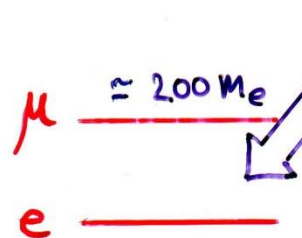 μ ≃ 200 me
e